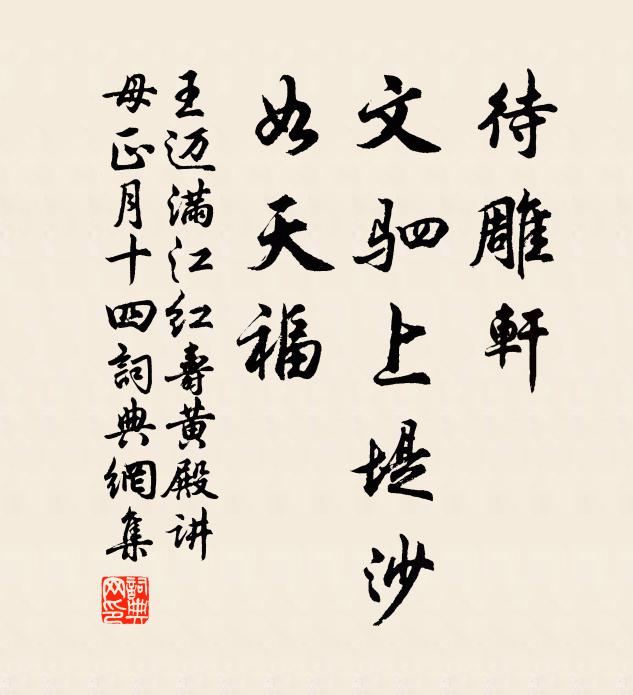 待雕軒
文驷上堤沙
如天福
王迈满江红壽黄殿讲
母正月十四詞典網集
詞典
网印